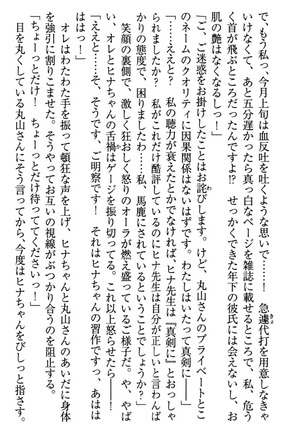 で、もう私っ、今月上旬は血反吐を吐くような思いで……！　急遽代打を用意しなきゃ
いけなくて、あと五分遅かったら真っ白なページを雑誌に載せるところで、私、危う
く首が飛ぶところだったんですよ!?　せっかくできた年下の彼氏には会えないし、お
肌の艶はなくなるしっ！」
「ご、ご迷惑をお掛けしたことはお詫びします。けど、丸山さんのプライベートとこ
のネームのクオリティに因果関係はないはずです。わたしはいたって真剣に――」
「ええっ？　私の聴力が衰えたとかでなければ、ヒナ先生は『真剣に』とおっしゃ
られましたか？　私がこれだけ酷評しているのにヒナ先生は自分が正しいと言わんば
かりの態度で、困りましたわ……私、馬鹿にされているということでしょうか？」
笑顔の裏側で、激しく狂おしい怒りのオーラが燃え盛っているご様子だ。や、やば
い、オレとヒナちゃんの舌禍はゲージを振り切ってる。これ以上怒らせたら――！
「ええと……そ、そうです、ご明察です！　それはヒナちゃんの習作ですっ、あはは
ははっ！」
オレはわたわた手を振って頓狂な声を上げ、ヒナちゃんと丸山さんのあいだに身体
を強引に割りこませた。そうやってお互いの視線がぶつかり合うのを阻止する。
「ちょーっとだけ！　ちょーっとだけ待っててくださいっ！」
目を丸くしている丸山さんにそう言ってから、今度はヒナちゃんをびしっと指さす。